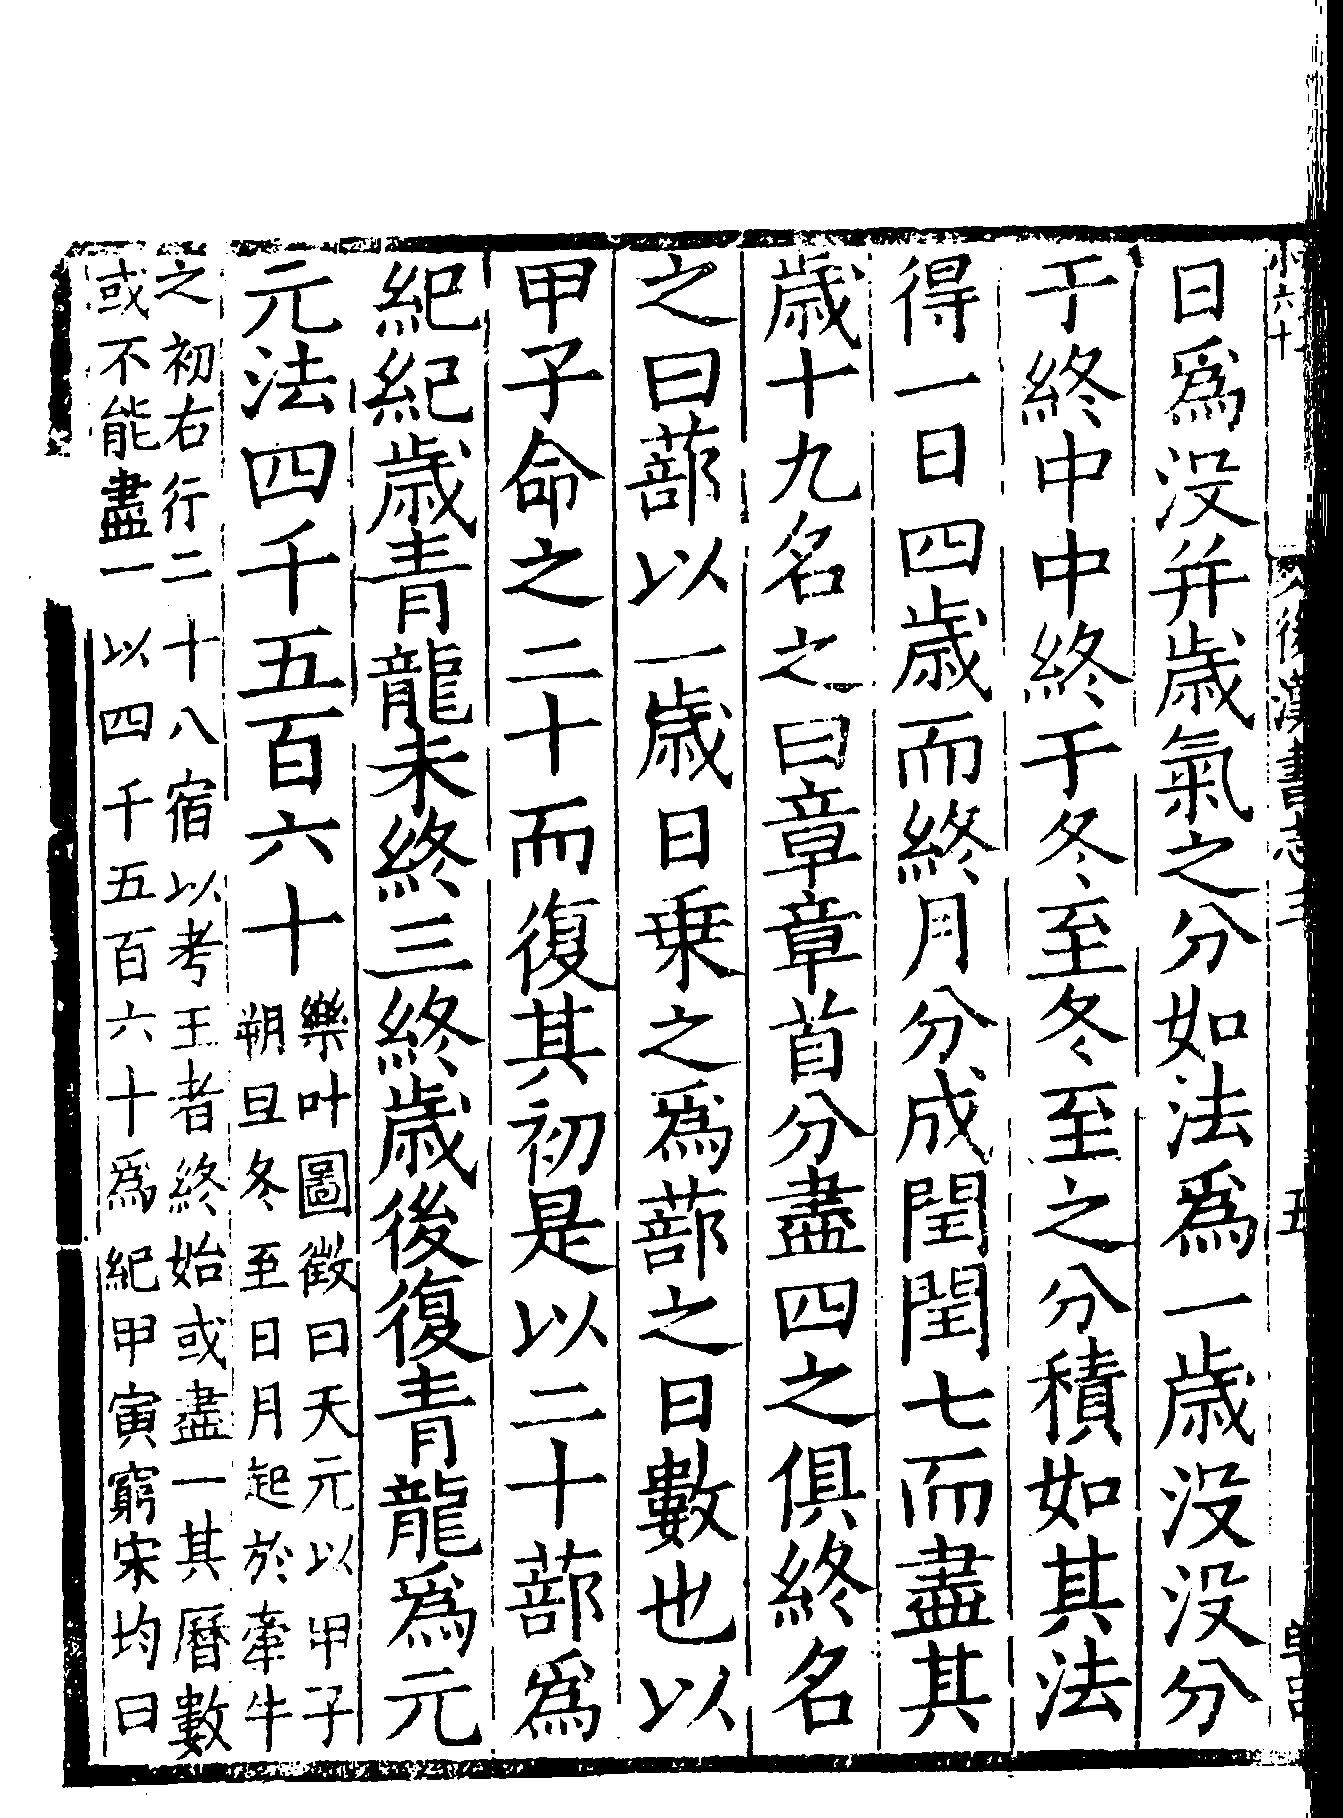 日爲没并歳氣之分如法爲一歳没没分
于終中中終于冬至冬至之分積如其法
得一日四歳而終月分成閏閏七而盡其
歳十九名之曰章章首分盡四之俱終名
之曰蔀以一歳日乗之爲蔀之日數也以
甲子命之二十而復其初是以二十蔀爲
紀紀歳青龍未終三終歳後復青龍爲元
元法四千五百六十
樂叶圖徴曰天元以甲子
朔旦冬至日月起於牽牛
之初右行二十八宿以考王者終始或盡一其曆數
或不能盡一以四千五百六十爲紀甲寅窮宋均曰
後漢書志三
五